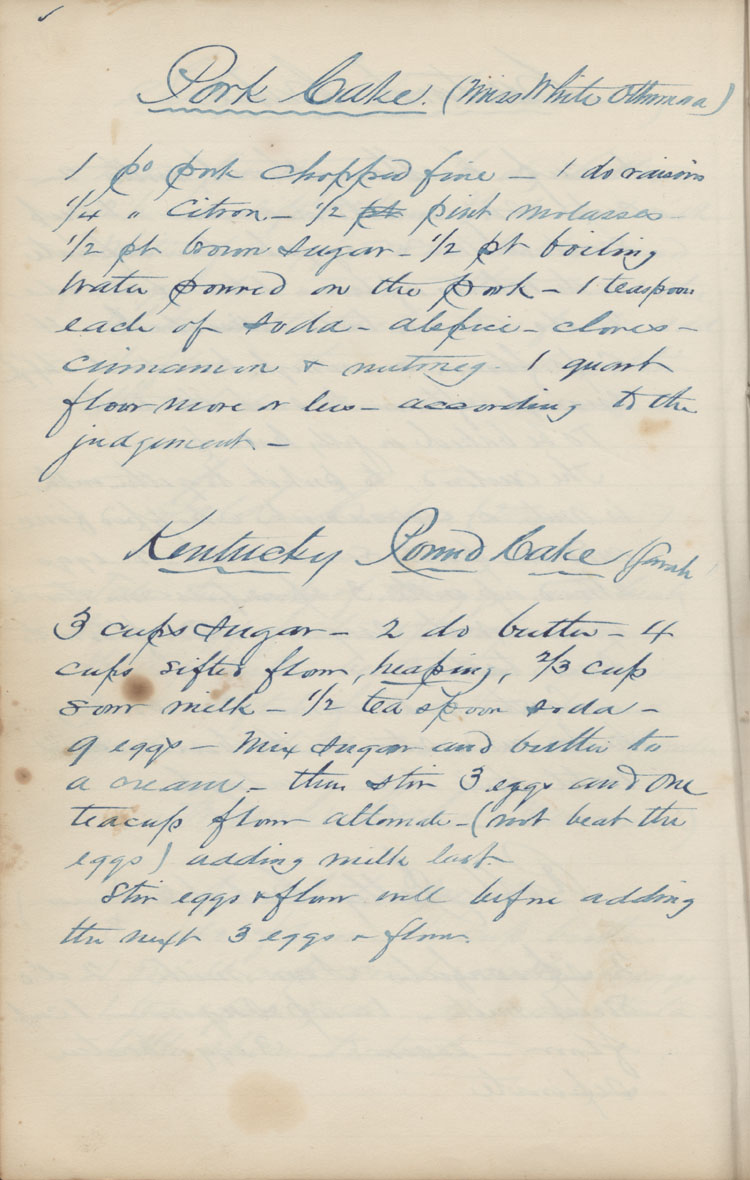 Pork Cake. (Miss White Ottumwa)
1 po pork chopped fine – 1 do raisins
1/4 " Citron – 1/2 pt pint molasses –
1/2 pt brown sugar – 1/2 pt boiling
water poured on the pork – 1 teaspoon
each of soda – alspice – cloves –
cinnamon & nutmeg. 1 quart
flour more or less – according to the
judgement –
Kentucky Pound Cake (Sarah)
3 cups sugar – 2 do butter – 4
cups sifted flour, heaping, 2/3 cup
sour milk – 1/2 tea spoon soda –
9 eggs – Mix sugar and butter to
a cream – then stir 3 eggs and one
teacup flour alternate – (not beat the
eggs) adding milk last
Stir eggs & flour well before adding
the next 3 eggs & flour.